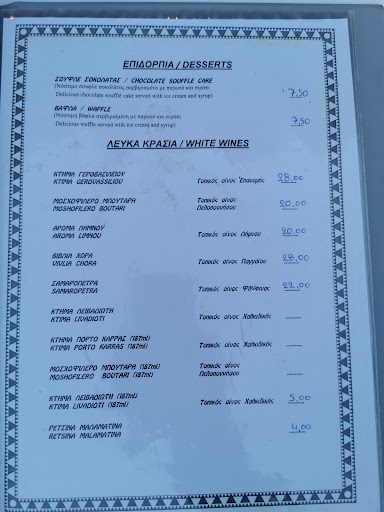 ΕΠΙΔΟΡΠΙΑ / DESSERTS
ΣΟΥΦΛΕ ΣΟΚΟΛΑΤΑΣ / CHOCOLATE SOUFFLE CAKE
(Νόστιμο σουφλέ σοκολάτας σερβιρισμένο με παγωτό και σιρόπι
Delicious chocolate soufflé cake served with ice cream and syrup) 7,50
ΒΑΦΛΑ / WAFFLE
(Νόστιμη βάφλα σερβιρισμένη με παγωτό και σιρόπι
Delicious waffle served with ice cream and syrup) 7,50
ΛΕΥΚΑ ΚΡΑΣΙΑ / WHITE WINES
ΚΤΗΜΑ ΓΕΡΟΒΑΣΙΛΕΙΟΥ
KTIMA GEROVASSILIOU Τοπικός οίνος Επανομής 28,00
ΜΟΣΧΟΦΙΛΕΡΟ ΜΠΟΥΤΑΡΗ Τοπικός οίνος
MOSHOFILERO BOUTARI Πελοποννήσου 20,00
ΑΡΩΜΑ ΛΗΜΝΟΥ
AROMA LIMNOU Τοπικός οίνος Λήμνου 20,00
ΒΙΒΛΙΑ ΧΩΡΑ
VIVLIA CHORA Τοπικός οίνος Παγγαίου 28,00
ΣΑΜΑΡΟΠΕΤΡΑ
SAMAROPETRA Τοπικός οίνος Φλώρινας 22,00
ΚΤΗΜΑ ΛΕΙΒΑΔΙΩΤΗ
KTIMA LIVADIOTI Τοπικός οίνος Χαλκιδικής
ΚΤΗΜΑ ΠΟΡΤΟ ΚΑΡΡΑΣ (187ml)
KTIMA PORTO KARRAS (187ml) Τοπικός οίνος Χαλκιδικής
ΜΟΣΧΟΦΙΛΕΡΟ ΜΠΟΥΤΑΡΗ (187ml) Τοπικός οίνος
MOSHOFILERO BOUTARI (187ml) Πελοποννήσου
ΚΤΗΜΑ ΛΕΙΒΑΔΙΩΤΗ (187ml)
KTIMA LIVADIOTI (187ml) Τοπικός οίνος Χαλκιδικής 5,00
ΡΕΤΣΙΝΑ ΜΑΛΑΜΑΤΙΝΑ
RETSINA MALAMATINA 4,00